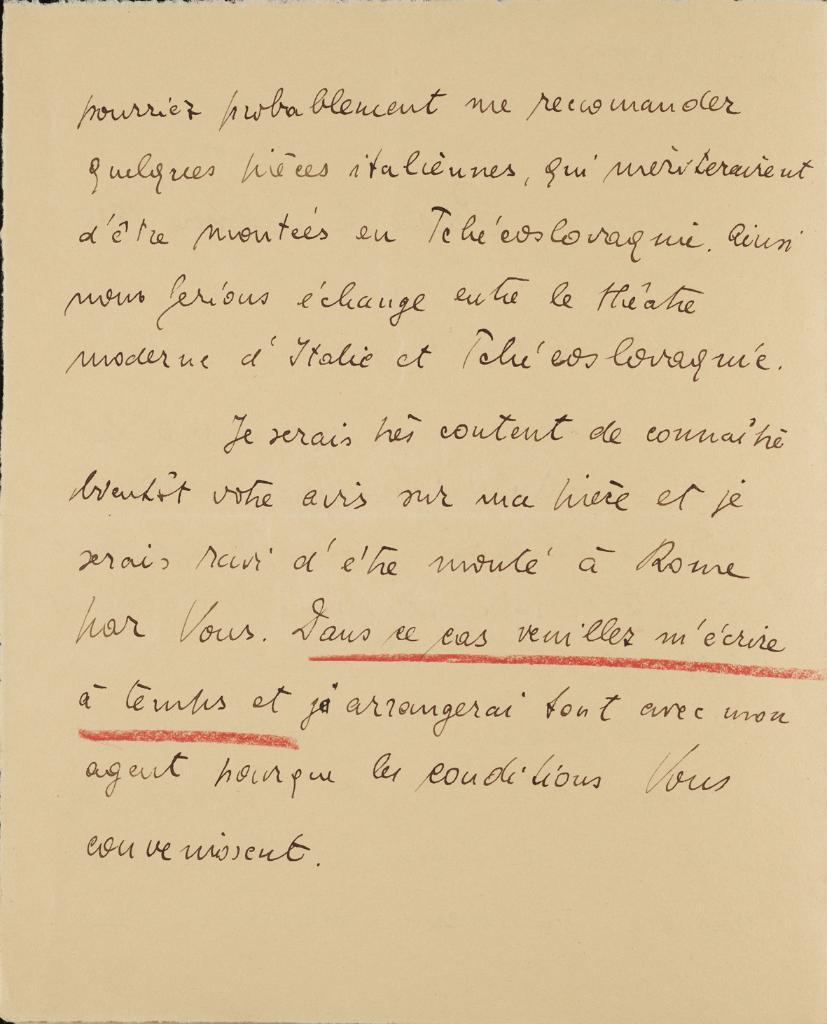 pourriez probablement me recomander
quelques pièces italiènnes, qui mèriteraient
d'être montées en Tchécoslovaquie. Ainsi
nous ferions échange entre le théâtre
moderne d'Italie et Tchécoslovaquie.
Je serais très content de connaître
bientôt votre avis sur ma pièce et je
serais ravi d'être monté à Rome
par Vous. Dans ce cas veuillez m'écrire
à temps et j'arrangerai tout avec mon
agent pourque les conditions Vous
convenissent.